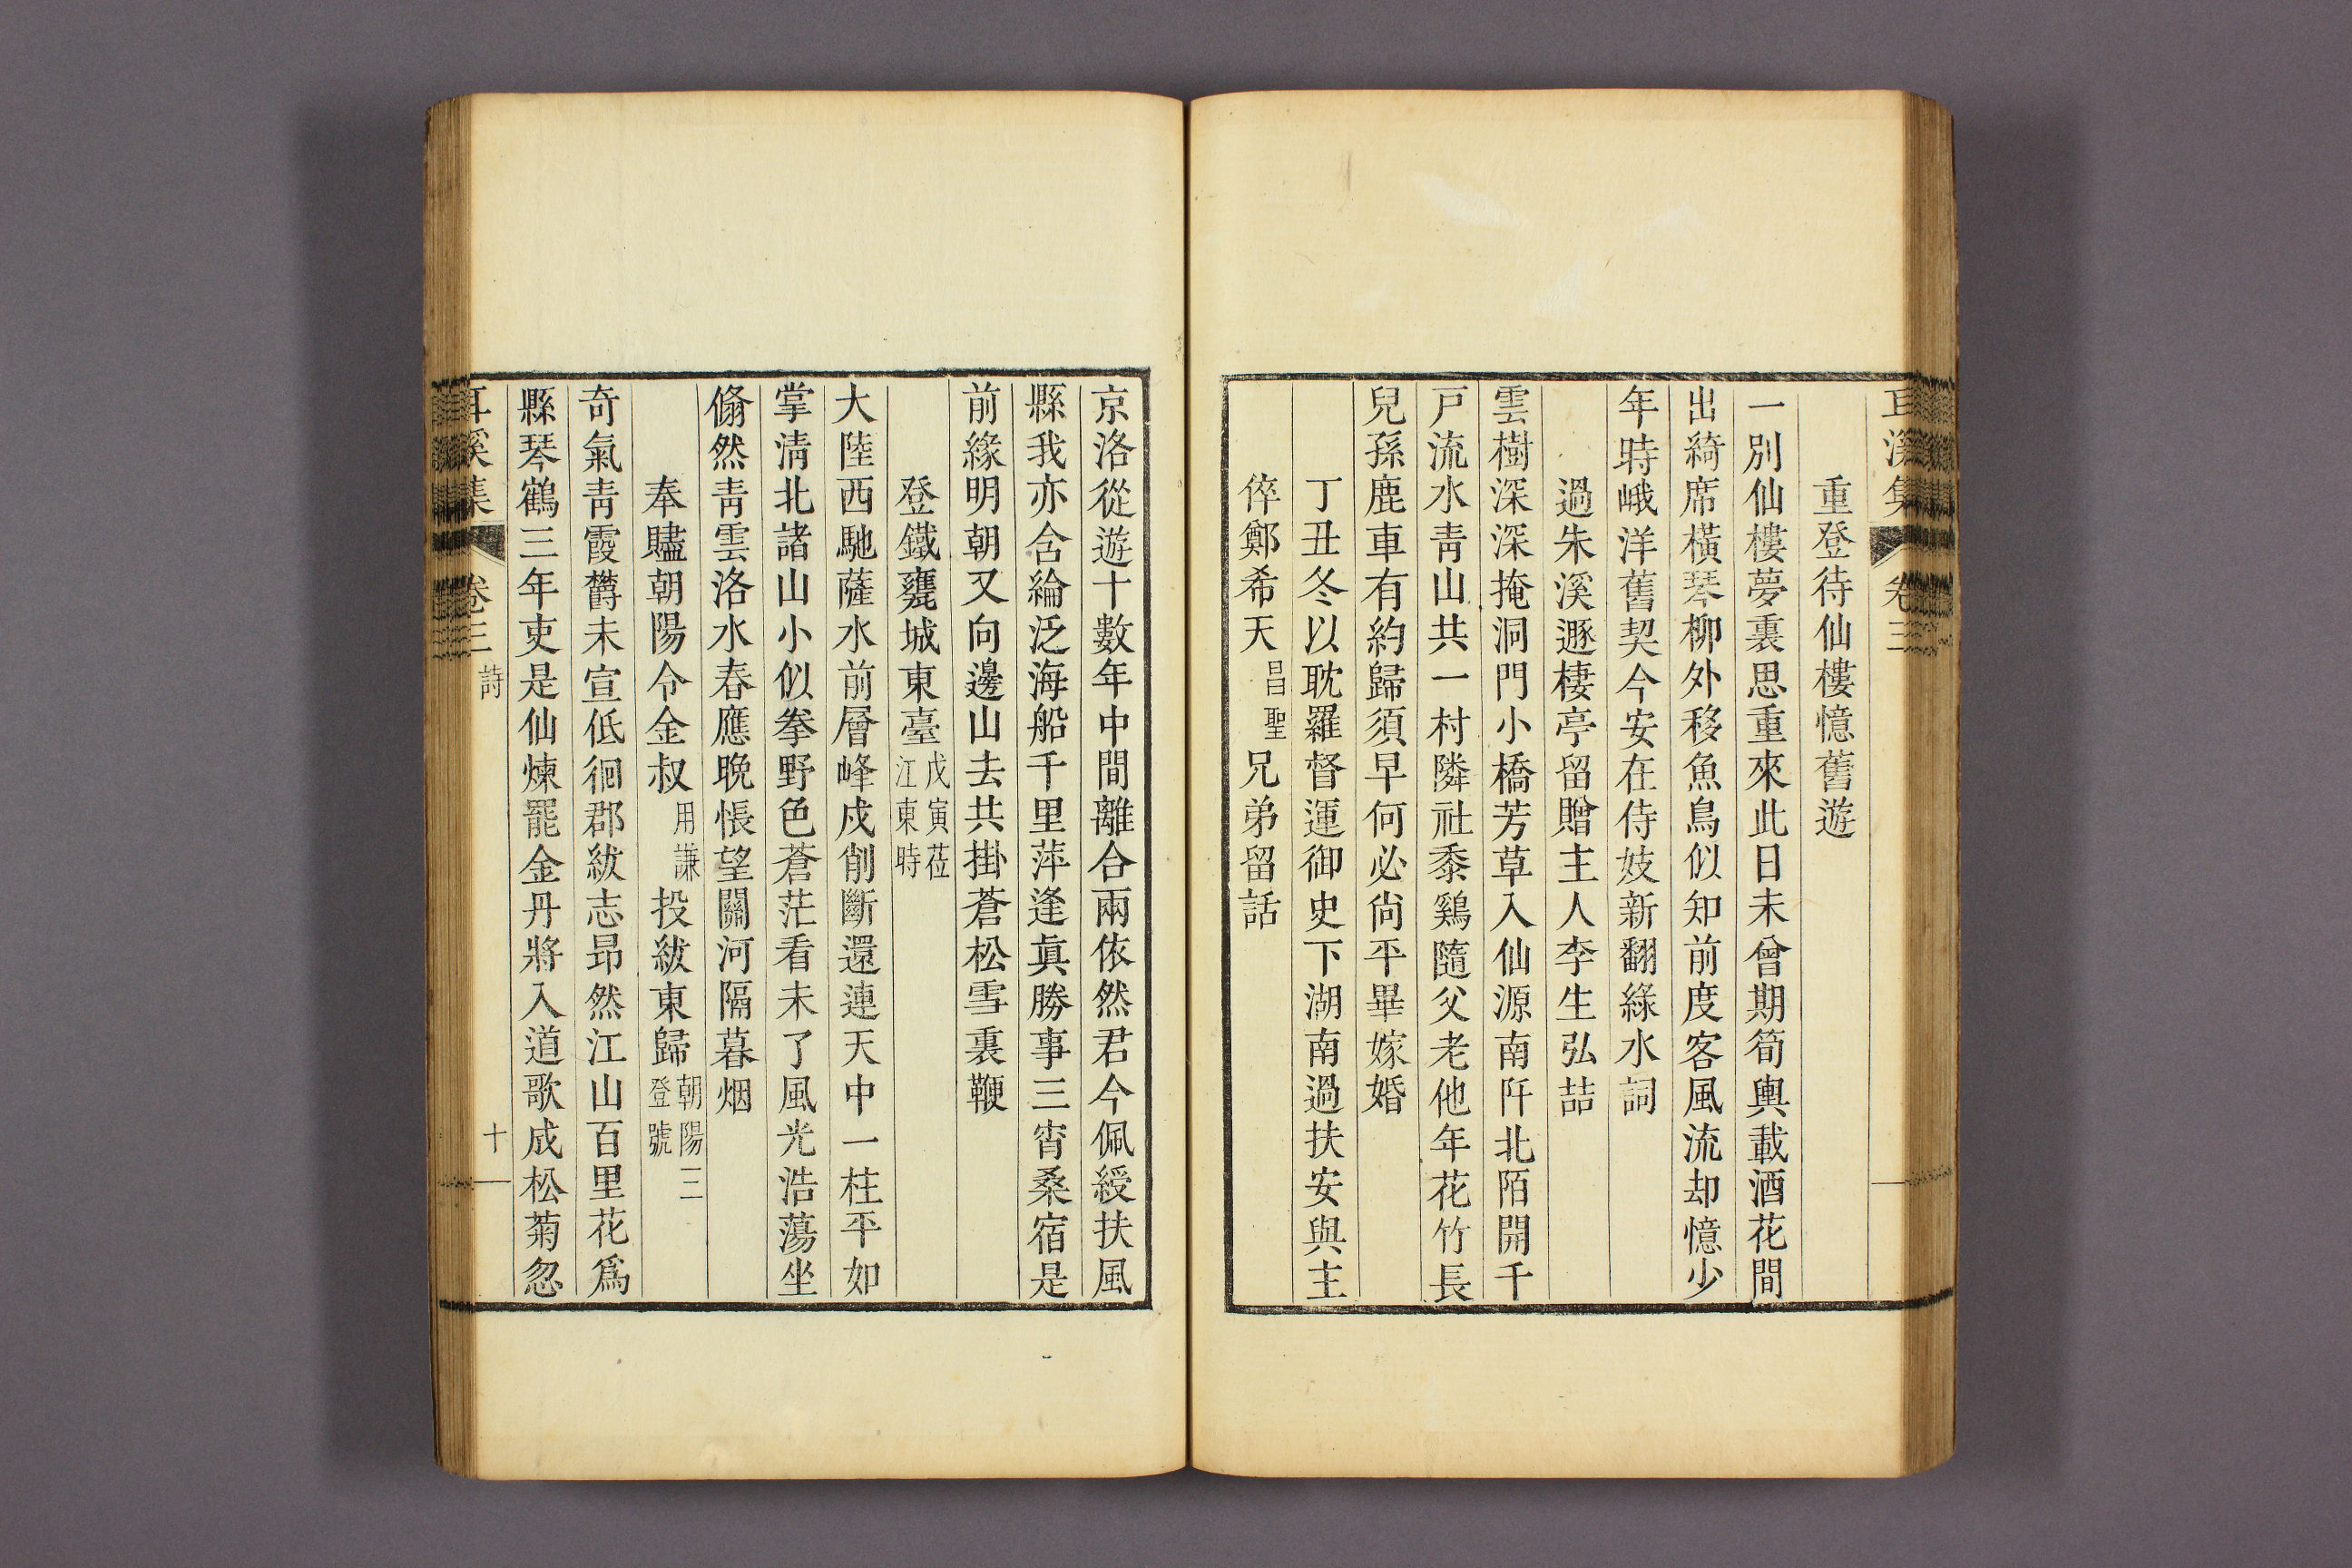 耳溪集 卷三
重登待仙樓憶舊遊
一別仙樓夢裏思重來此日未曾期筍輿載酒花間
出綺席橫琴柳外移魚鳥似知前度客風流却憶少
年時峨洋舊契今安在侍妓新翻綠水詞
過朱溪遯棲亭留贈主人李生弘喆
雲樹深深掩洞門小橋芳草入仙源南阡北陌開千
戶流水靑山共一村隣社黍鷄隨父老他年花竹長
兒孫鹿車有約歸須早何必尙平畢嫁婚
丁丑冬以耽羅督運御史下湖南過扶安與主
倅鄭希天昌聖兄弟留話
京洛從遊十數年中間離合兩依然君今佩綬扶風
縣我亦含綸泛海船千里萍逢眞勝事三宵桑宿是
前緣明朝又向邊山去共掛蒼松雪裏鞭
登鐵甕城東臺戊寅莅江東時
大陸西馳薩水前層峰戍削斷還連天中一柱平如
掌淸北諸山小似拳野色蒼茫看未了風光浩蕩坐
翛然靑雲洛水春應晩悵望關河隔暮烟
奉贐朝陽令金叔用謙投紱東歸朝陽三登號
奇氣靑霞欝未宣低徊郡紱志昂然江山百里花爲
縣琴鶴三年吏是仙煉罷金丹將入道歌成松菊忽
耳溪集 卷三 詩 十